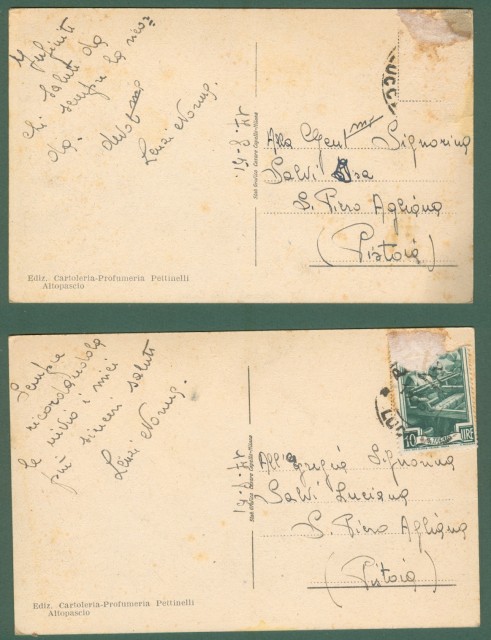 Infiniti
saluti da
chi sempre la ricor-
da.
dev.ma
Lenzi Norma.
LUCC
14-8-51.
Alla Gent.ma Signorina
Salvi
S. Piero Agliana
(Pistoia)
Ediz. Cartoleria-Profumeria Pettinelli
Altopascio
Sempre
ricordandola
le invio i miei
più sinceri saluti
Lenzi Norma.
LUC
10 LIRE
All'egregia Signorina
Salvi Luciana
S. Piero Agliana
(Pistoia)
Ediz. Cartoleria-Profumeria Pettinelli
Altopascio